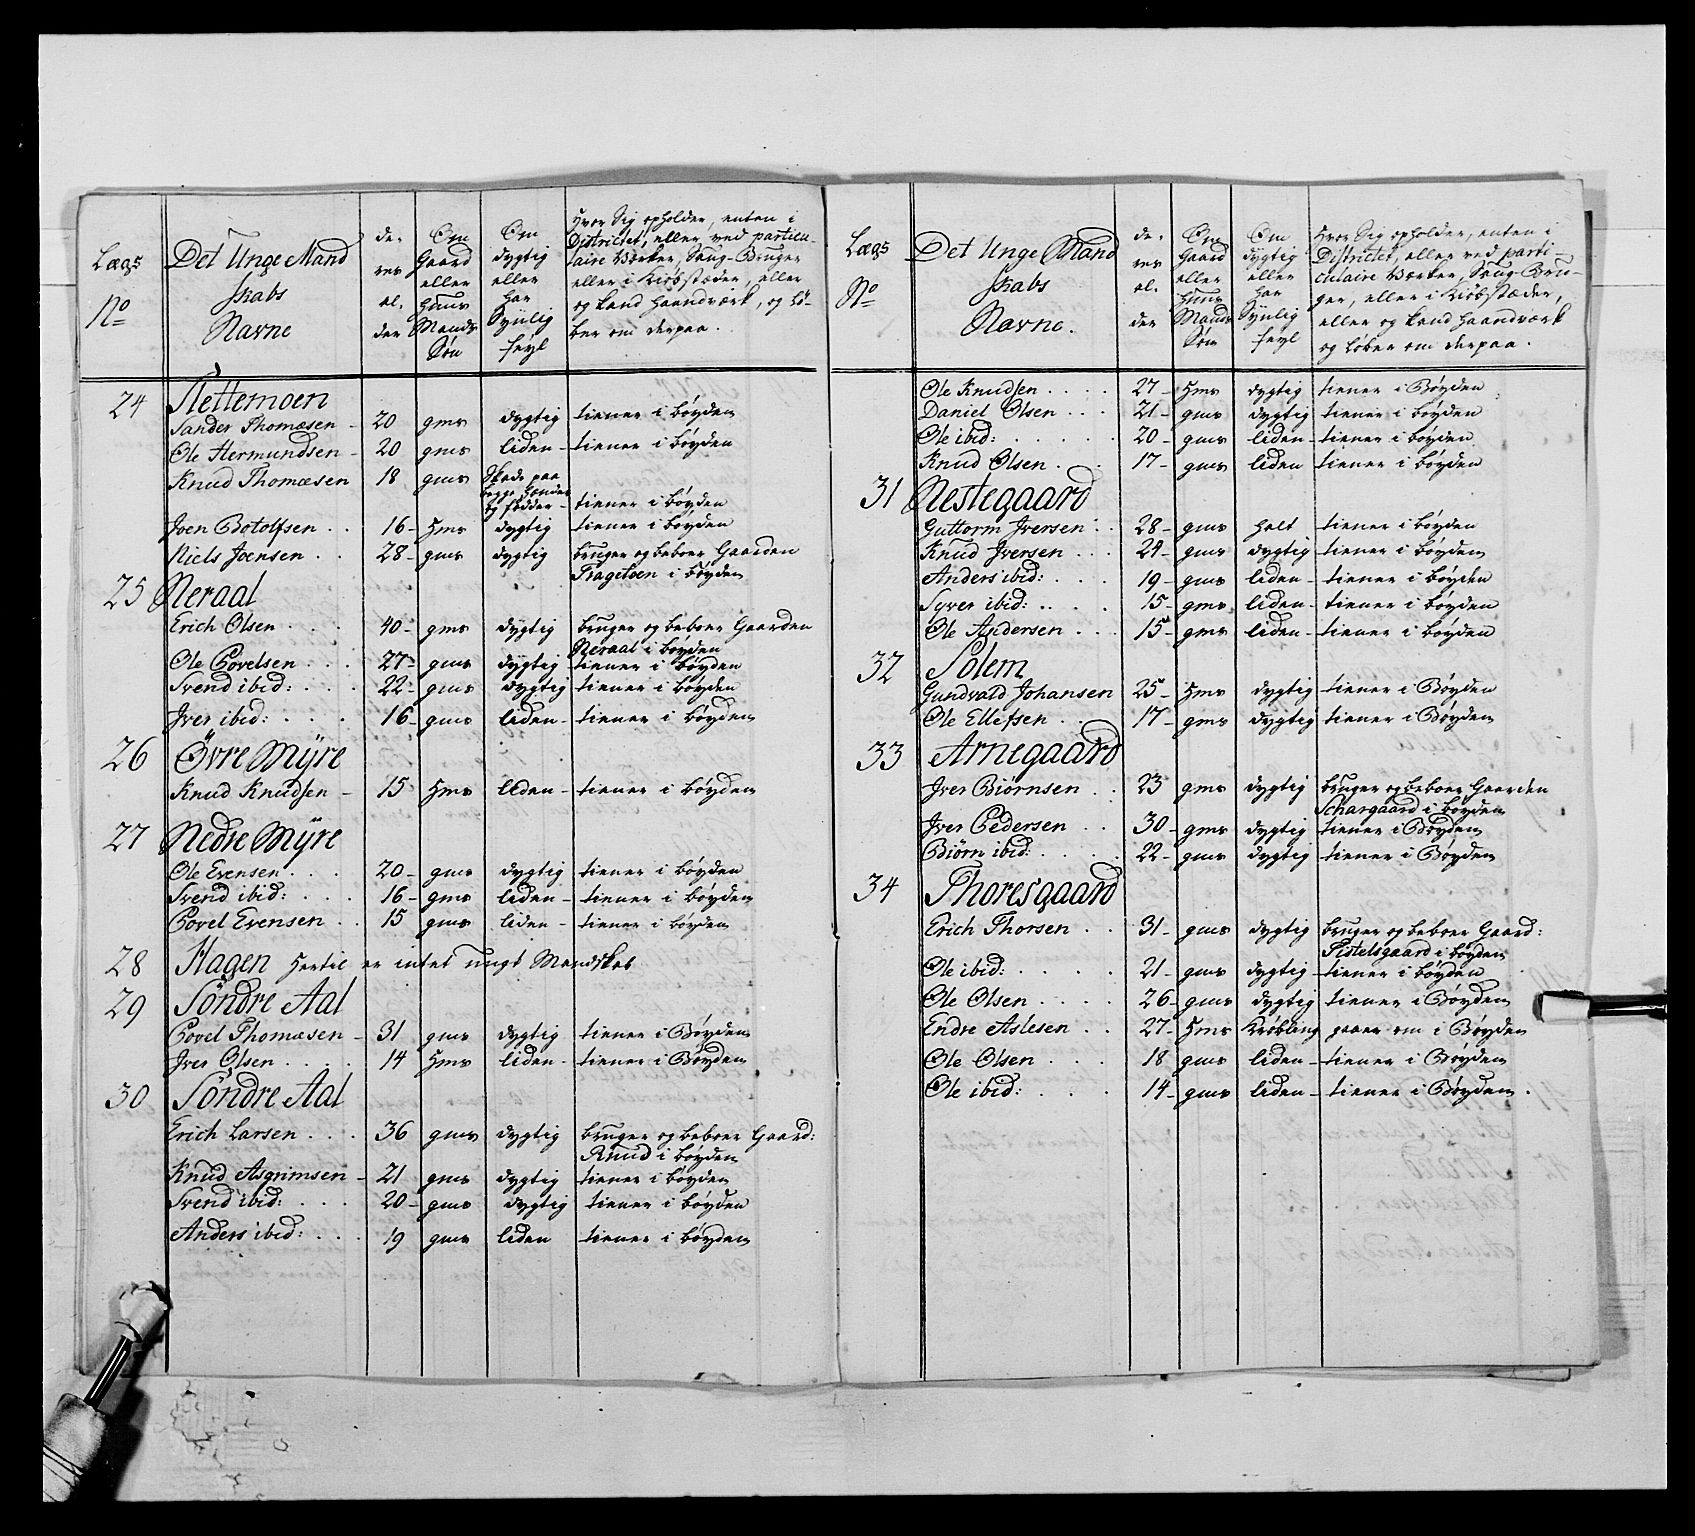 Lægs No
Det Unge Mand skabs Navne
de- res al. der
Om Gaard eller Huus Mands Søn
Om dygtig eller har Synlig feyl
Hvor Sig opholder, enten i Districtet, eller ved particu- laire Værker, Saug-Bruger eller i Kiøbstæder, eller og kand Haandværk, og lø- ber om derpaa.
24 Slettemoen
Sander Thomæsen - 20 gms dygtig tiener i bøyden
Ole Hermundsen - 20 gms liden - tiener i bøyden
Knud Thomæsen 18 gms Skade paa begge Hænder og fødder - tiener i bøyden
Iven Botolfsen . . 16 - Hms dygtig tiener i bøyden
Niels Joensen . . 28 - gms dygtig bruger og beboer Gaarden
Tragetoen i bøyden
25 Neraal
Erich Olsen . . . 40 - gms dygtig bruger og beboer Gaarden
Neraal i bøyden
Ole Povelsen . . . 27 - gms dygtig tiener i bøyden
Svend ibid: . . . 22 - gms dygtig tiener i bøyden
Iver ibid: . . . . 16 - gms liden - tiener i bøyden
26 Övre Myre
Knud Knudsen - 15 Hms liden - tiener i bøyden
27 Nedre Myre
Ole Evensen . . . 20 - gms dygtig tiener i bøyden
Svend ibid: . . . 16 - gms liden - tiener i bøyden
Povel Evensen . . 15 gms liden - tiener i bøyden
28 Hagen Hertil er intet ungt Mandskab
29 Söndre Aal
Povel Thomæsen - 31 gms dygtig tiener i Bøyden
Iver Olsen . . . . 14 Hms liden - tiener i Bøyden
30 Söndre Aal
Erich Larsen . . . 36 gms dygtig bruger og beboer Gaard:
Rnud i bøyden
Knud Asgrimsen - 21 gms dygtig tiener i bøyden
Svend ibid: . . . 20 - gms dygtig tiener i bøyden
Anders ibid: . . . 19 gms liden tiener i bøyden
Lægs No
Det Unge Mand skabs Navne.
de- res al. der
Om Gaard eller Huus Mands Søn
Om dygtig eller har Synlig feyl
Hvor Sig opholder, enten i Districtet, eller ved parti- culaire Værker, Saug-Bru- ger, eller i Kiøbstæder, eller og kand Haandværk og løber om derpaa.
Ole Knudsen . . . . 27 - Hms dygtig tiener i Bøyden
Daniel Olsen . . . 21 - gms dygtig tiener i bøyden
Ole ibid: . . . . . 20 - gms liden - tiener i bøyden
Knud Olsen . . . 17 - gms liden tiener i bøyden
31 Nestegaard
Guttorm Iversen . . 28 - gms halt tiener i bøyden
Knud Iversen . . . 24 - gms dygtig tiener i bøyden
Anders ibid: . . . 19 - gms liden - tiener i bøyden
Syver ibid: . . . . 15 - gms liden - tiener i bøyden
Ole Andersen . . . 15 - gms liden - tiener i bøyden
32 Solem
Gundvald Johansen 25 - Hms dygtig tiener i Bøyden
Ole Ellefsen . . . 17 - gms dygtig tiener i Bøyden
33 Arnegaard
Iver Biørnsen . . 23 gms dygtig bruger og beboer Gaarden
Schargaard i bøyden
Iver Pedersen . . 30 - gms dygtig tiener i Bøyden
Biørn ibid: . . . . 22 - gms dygtig tiener i Bøyden
34 Thoresgaard
Erich Thorsen . . 31 - gms dygtig bruger og beboer Gaard:
Sistelsgaard i bøyden
Ole ibid: . . . . . 21 - gms dygtig - tiener i bøyden
Ole Olsen . . . . 26 - gms dygtig tiener i Bøyden
Endre Aslesen . . 27 - Hms Krøbling gaaer om i Bøyden
Ole Olsen . . . 18 gms liden - tiener i Bøyden
Ole ibid: . . . . 14 - gms liden - tiener i Bøyden .